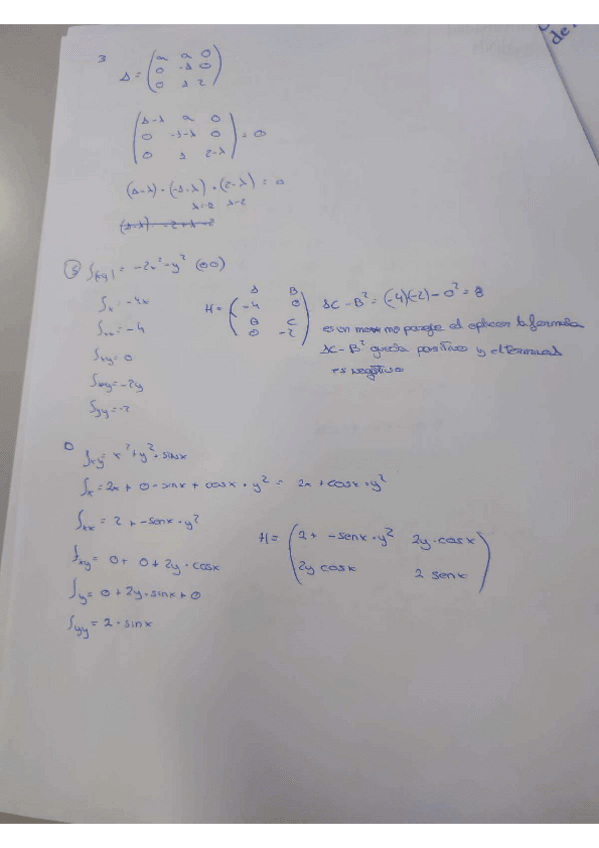 de
3
A = (a a 0
0 -1 0
0 1 2)
(1-λ a 0
0 -1-λ 0
0 1 2-λ) = 0
(1-λ) · (-1-λ) · (2-λ) = 0
λ=2
5 f(x,y) = -2x² - y² (0,0)
fx = -4x
fxx = -4
fxy = 0
fy = -2y
fyy = -2
A B
H = (-4 0
B C
0 -2)
AC - B² = (-4)(-2) - 0² = 8
es un maximo porque al aplicar la formula
AC - B² queda positivo y el termino A
es negativo
fxy = x² + y² · sinx
fx = 2x + 0 - sinx + cosx · y² = 2x + cosx · y²
fxx = 2 + -senx · y²
fxy = 0 + 0 + 2y · cosx
fy = 0 + 2y · sinx + 0
fyy = 2 · sinx
H = (2 + -senx · y² 2y · cosx
2y cosx 2 senx)